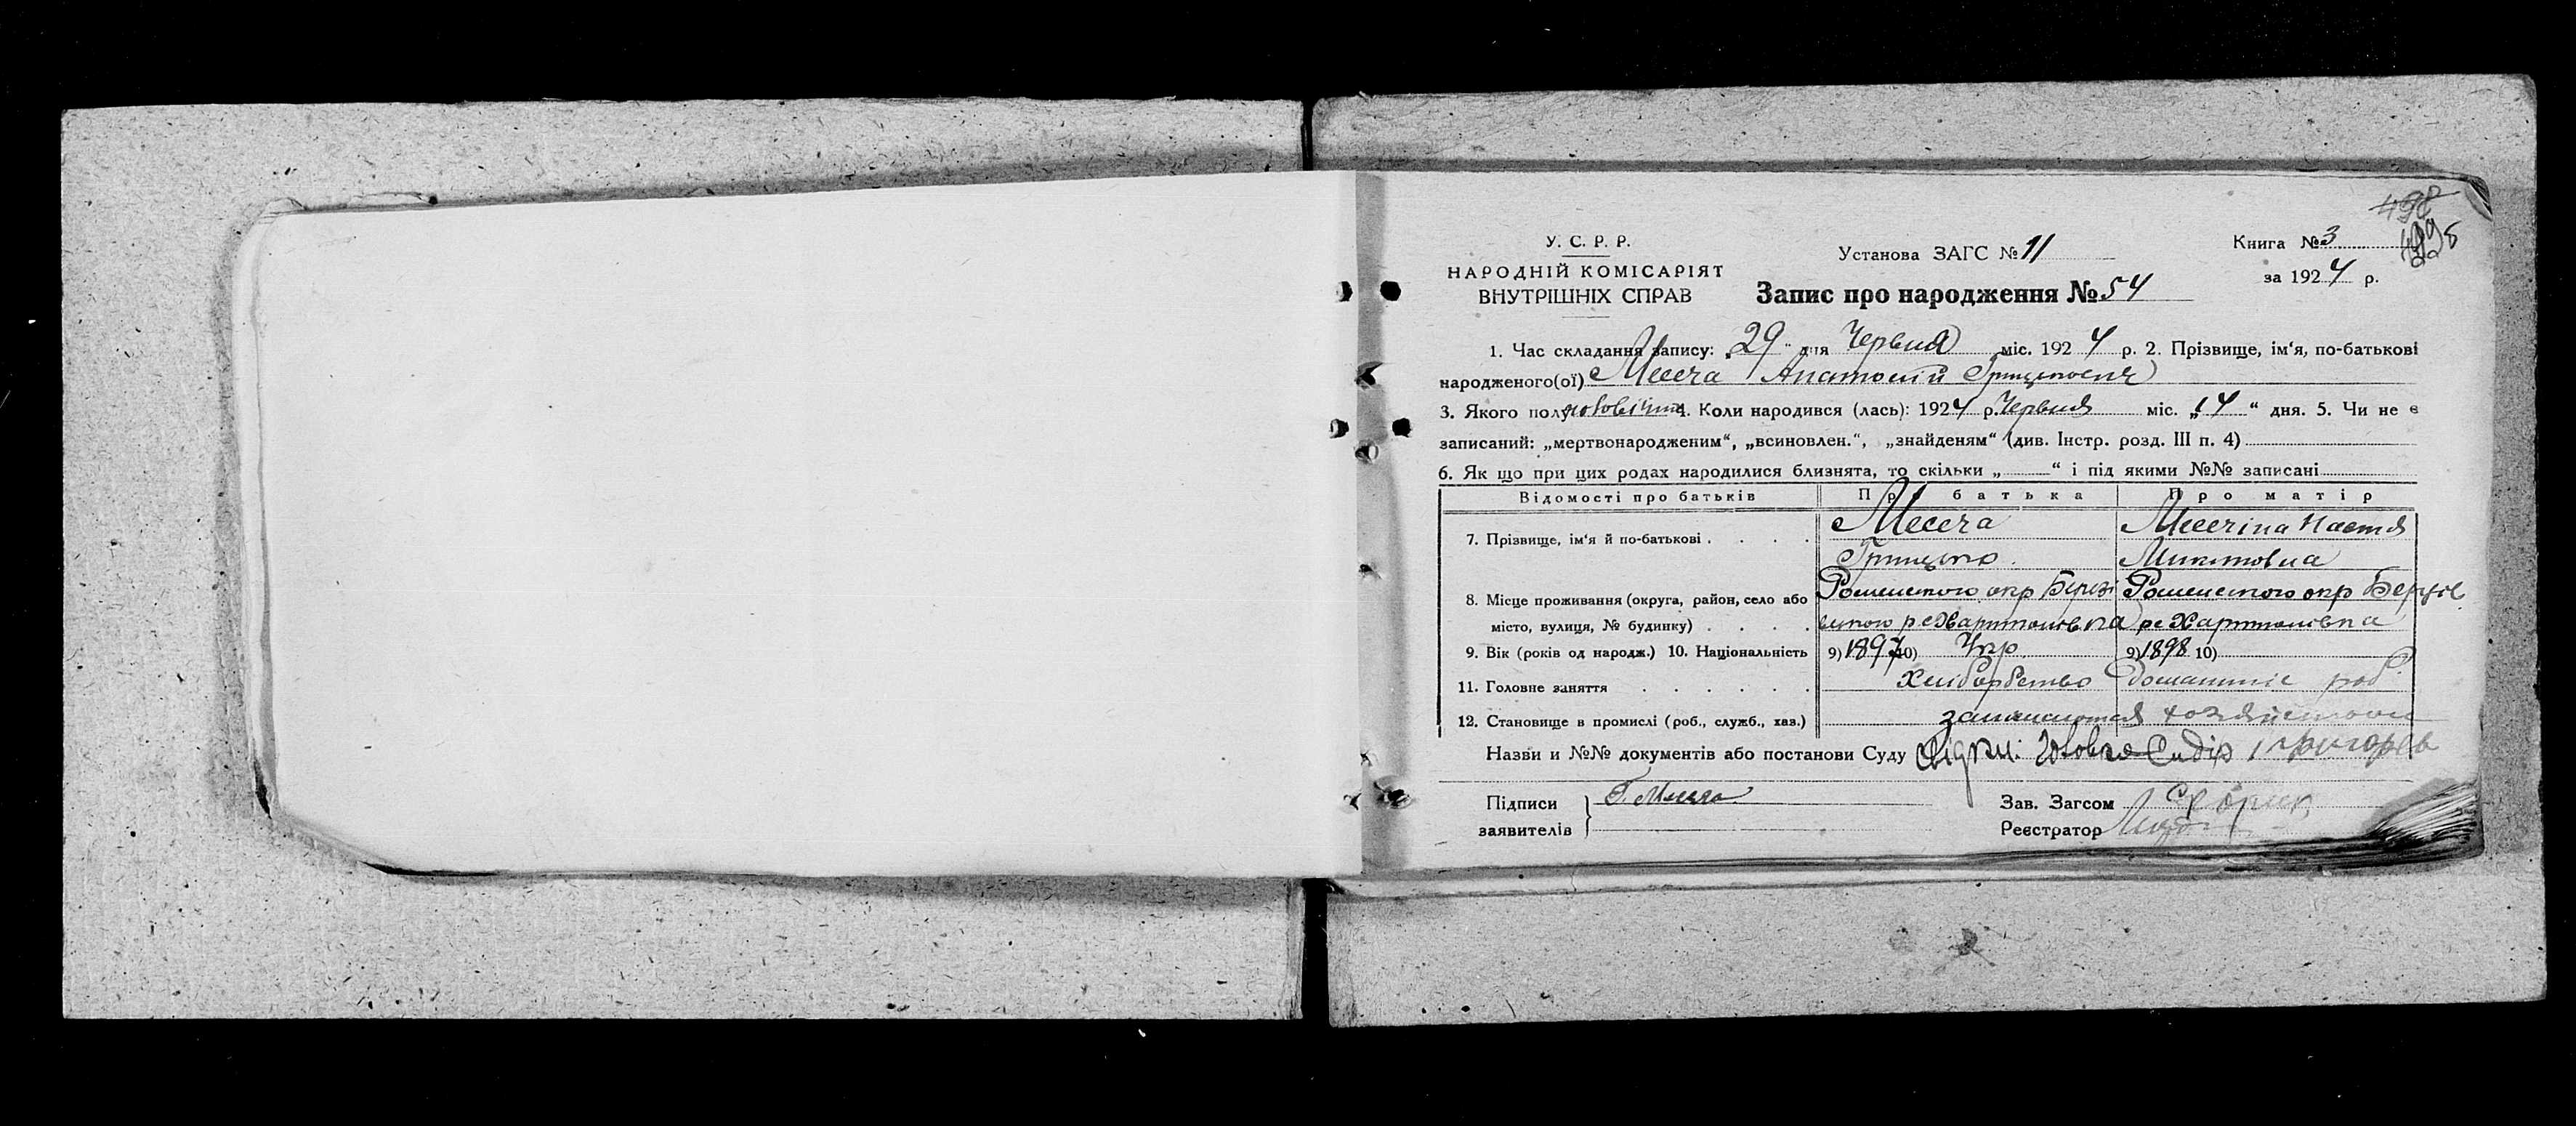 498
У. С. Р. Р.
НАРОДНІЙ КОМІСАРІЯТ
ВНУТРІШНІХ СПРАВ
Установа ЗАГС № 11
Книга № 3
за 1924 р.
Запис про народження № 54
1. Час складання запису: „29“ дня Червня міс. 1924 р. 2. Прізвище, ім'я, по-батькові
народженого(ої) Месеча Анатолій Грицькович
3. Якого полу чоловічина 4. Коли народився (лась): 1924 р. Червня міс. „14“ дня. 5. Чи не є
записаний: „мертвонародженим“, „всиновлен.“, „знайденям“ (див. Інстр. розд. III п. 4)
6. Як що при цих родах народилися близнята, то скільки „ “ і під якими №№ записані
Відомості про батьків Про батька Про матір
7. Прізвище, ім'я й по-батькові Месеча Месечіна Настя
Грицько Микитовна
8. Місце проживання (округа, район, село або Роменского окр Роменского окр
місто, вулиця, № будинку) р с Харитонівка р с Харитонівка
9. Вік (років од народж.) 10. Національність 9) 1897 10) Укр 9) 1898 10)
11. Головне заняття Хліборбство Домашние раб
12. Становище в промислі (роб., служб., хаз.) занимаются
Назви и №№ документів або постанови Суду Сидір Григорів
Підписи Г. Месеча
заявителів
Зав. Загсом
Реєстратор